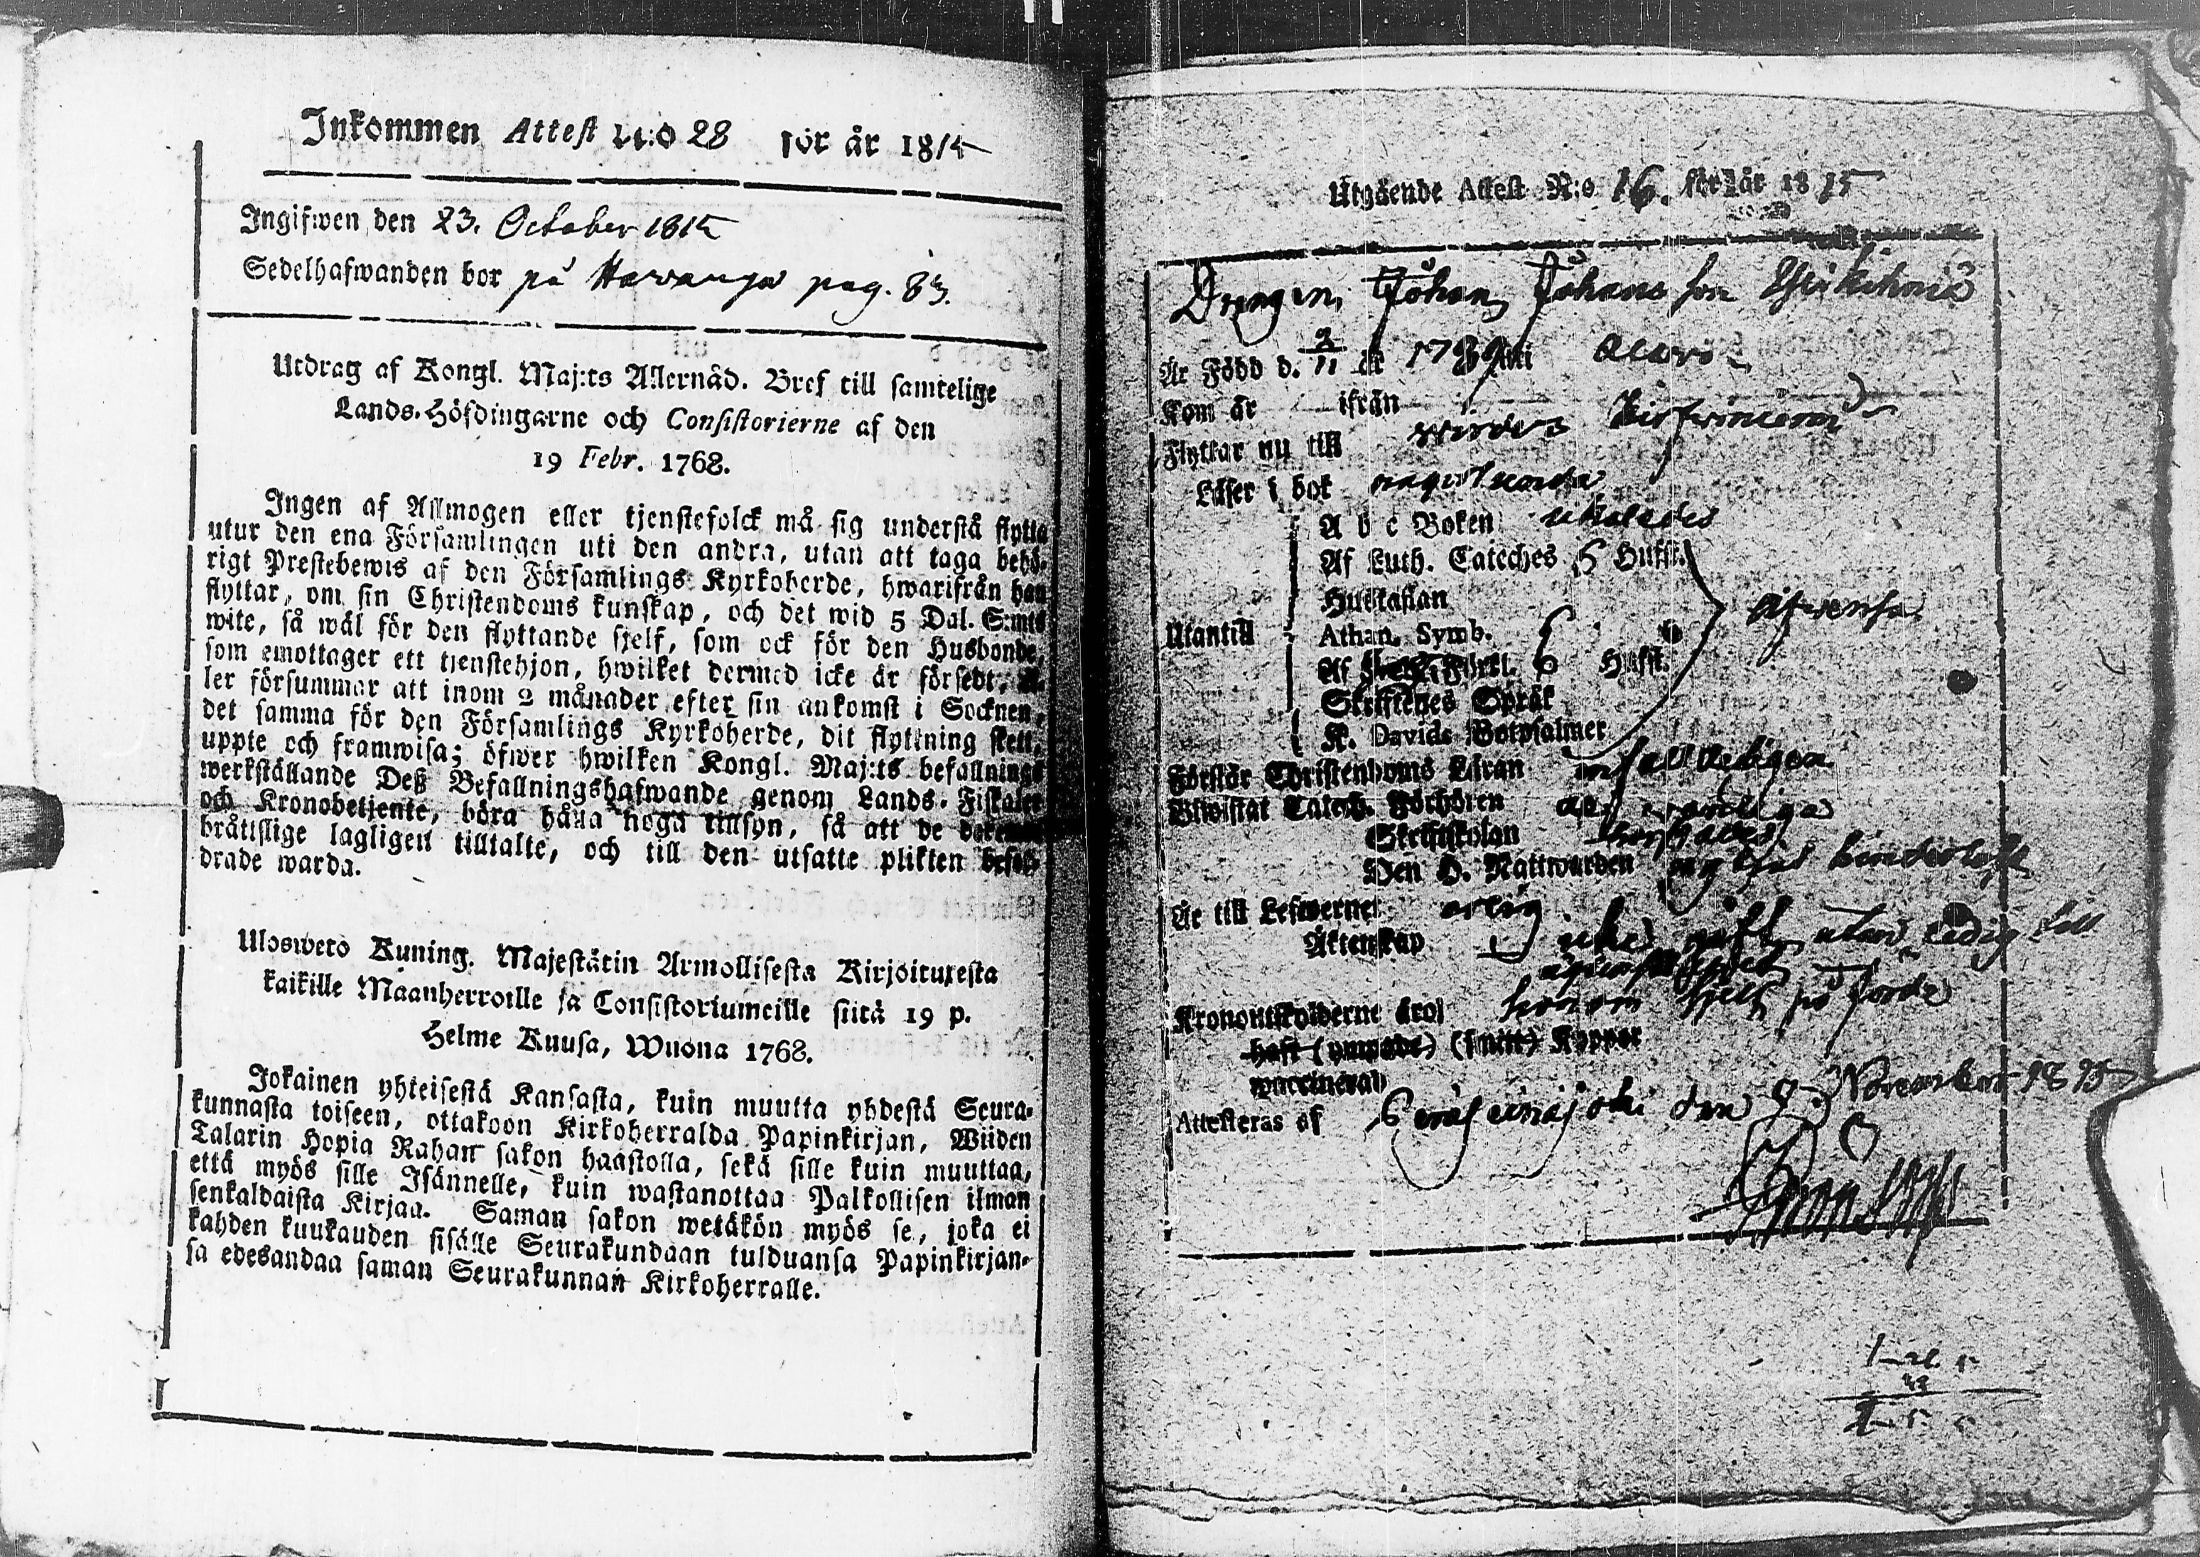 Inkommen Attest N:o 28 för år 1815
Ingifwen den 23. October 1815
Sedelhafwanden bor på Havanga pag. 83.
Utdrag af Kongl. Maj:ts Allernåd. Bref till samtelige
Lands-Höfdingarne och Consistorierne af den
19 Febr. 1768.
Ingen af Allmogen eller tjenstefolck må sig understå flytta
utur den ena Församlingen uti den andra, utan att taga behö-
rigt Prestebewis af den Församlings Kyrkoherde, hwarifrån han
flyttar, om sin Christendoms kunskap, och det wid 5 Dal. S:mts
wite, så wäl för den flyttande sjelf, som ock för den Husbonde,
som emottager ett tjenstehjon, hwilket dermed icke är försedt, el-
ler försummar att inom 2 månader efter sin ankomst i Socknen,
det samma för den Församlings Kyrkoherde, dit flyttning skett,
uppte och framwisa; öfwer hwilken Kongl. Maj:ts befallnings
werkställande Deß Befallningshafwande genom Lands-Fiskaler
och Kronobetjente, böra hålla noga tillsyn, så att de
bråttslige lagligen tilltalte, och till den utsatte plikten befor-
drade warda.
Ulosweto Kuning. Majestätin Armollisesta Kirjoituxesta
kaikille Maanherroille ja Consistoriumeille siitä 19 p.
Helme Kuusa, Wuona 1768.
Jokainen yhteisestä Kansasta, kuin muutta yhdestä Seura-
kunnasta toiseen, ottakoon Kirkoherralda Papinkirjan, Wiiden
Talarin Hopia Rahan sakon haastolla, sekä sille kuin muuttaa,
että myös sille Isännelle, kuin wastanottaa Palkollisen ilman
senkaldaista Kirjaa. Saman sakon wetäkön myös se, joka ei
kahden kuukauden sisälle Seurakundaan tulduansa Papinkirjan-
sa edesandaa saman Seurakunnan Kirkoherralle.
Utgående Attest N:o 16. för år 1815
Drängen Johan Johansson
Är Född d. 2/11 år 1789 uti Alavo
Kom år ifrån
Flyttar nu till
Läser i bok någorlunda
A b c Boken
Af Luth. Cateches 5 Hufst.
Hustaflan
Utantill Athan. Symb.
Af Förkl. 6 Hufst.
Skriftenes Språk
K. Davids Botpsalmer
Förstår Christendoms Läran enfalldeligen
Biwistat Catech. Förhören
Skriftskolan
Den H. Nattwarden
Är till Lefwernet ärlig
Äktenskap icke gift, utan ledig till
äktenskap
Kronoutskylderne äro
haft (ympade) (smitt) Koppor
waccinerad
Attesteras af den 9 November 1815